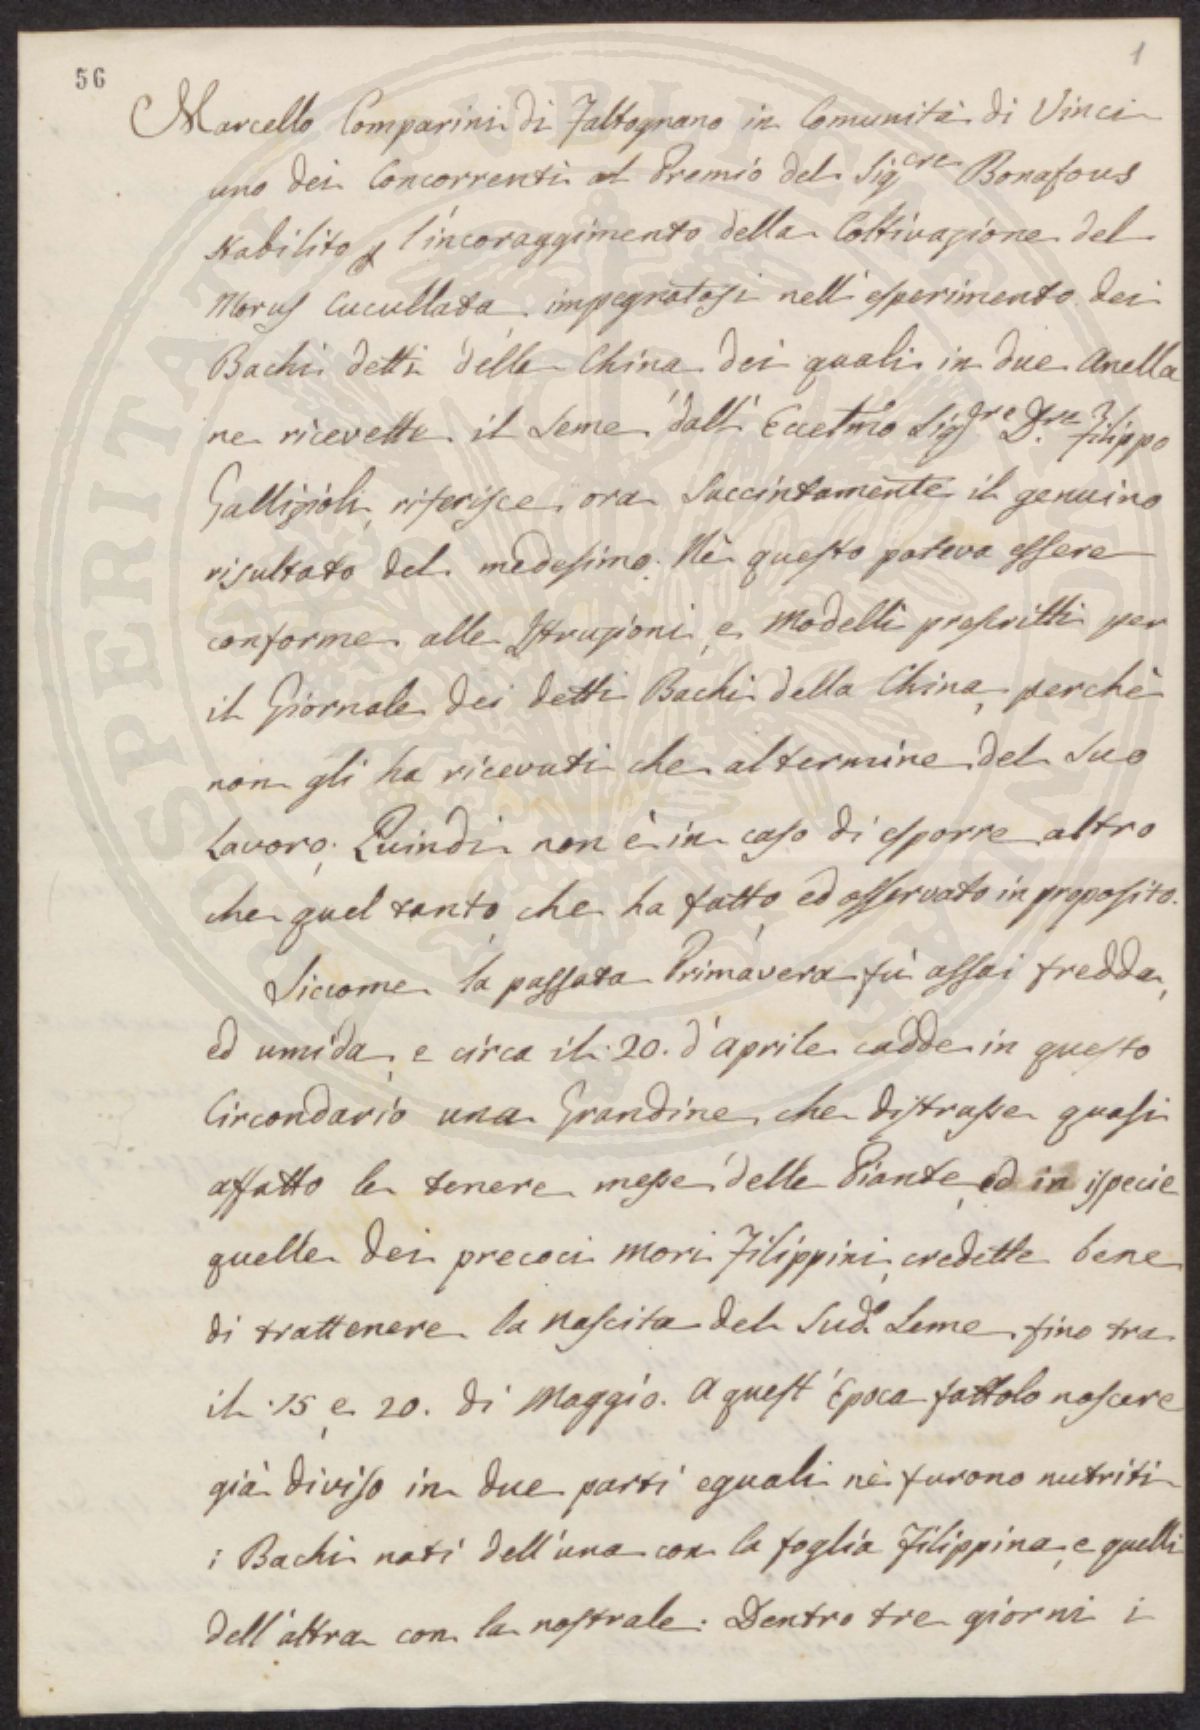 56
1
Marcello Comparini di Faltognano in Comunità di Vinci
uno dei Concorrenti al Premio del Sig.cre Bonafous
stabilito p l'incoraggimento della Coltivazione del
Morus Cucullata, impegnatosi nell'esperimento dei
Bachi detti della China dei quali in due Anella
ne ricevette il Seme dall' Eccelmo Sigre D.re Filippo
Gallizioli, riferisce ora Succintamente il genuino
risultato del medesimo. Nè questo poteva essere
conforme alle Istruzioni, e Modelli prescritti per
il Giornale dei detti Bachi della China, perchè
non gli ha ricevuti che al termine del Suo
Lavoro; Quindi non è in caso di esporre altro
che quel tanto, che ha fatto, ed osservato in proposito.
Siccome la passata Primavera fù assai fredda,
ed umida, e circa il 20. d'Aprile cadde in questo
Circondario una Grandine, che distrusse quasi
affatto le tenere messe delle Piante, ed in ispecie
quelle dei precoci Mori Filippini, credette bene
di trattenere la nascita del Sud.o Seme fino tra
il 15, e 20. di Maggio. A quest'Epoca fattolo nascere
già diviso in due parti eguali nè furono nutriti
i Bachi nati dell'una con la foglia Filippina, e quelli
dell'altra con la nostrale. Dentro tre giorni i